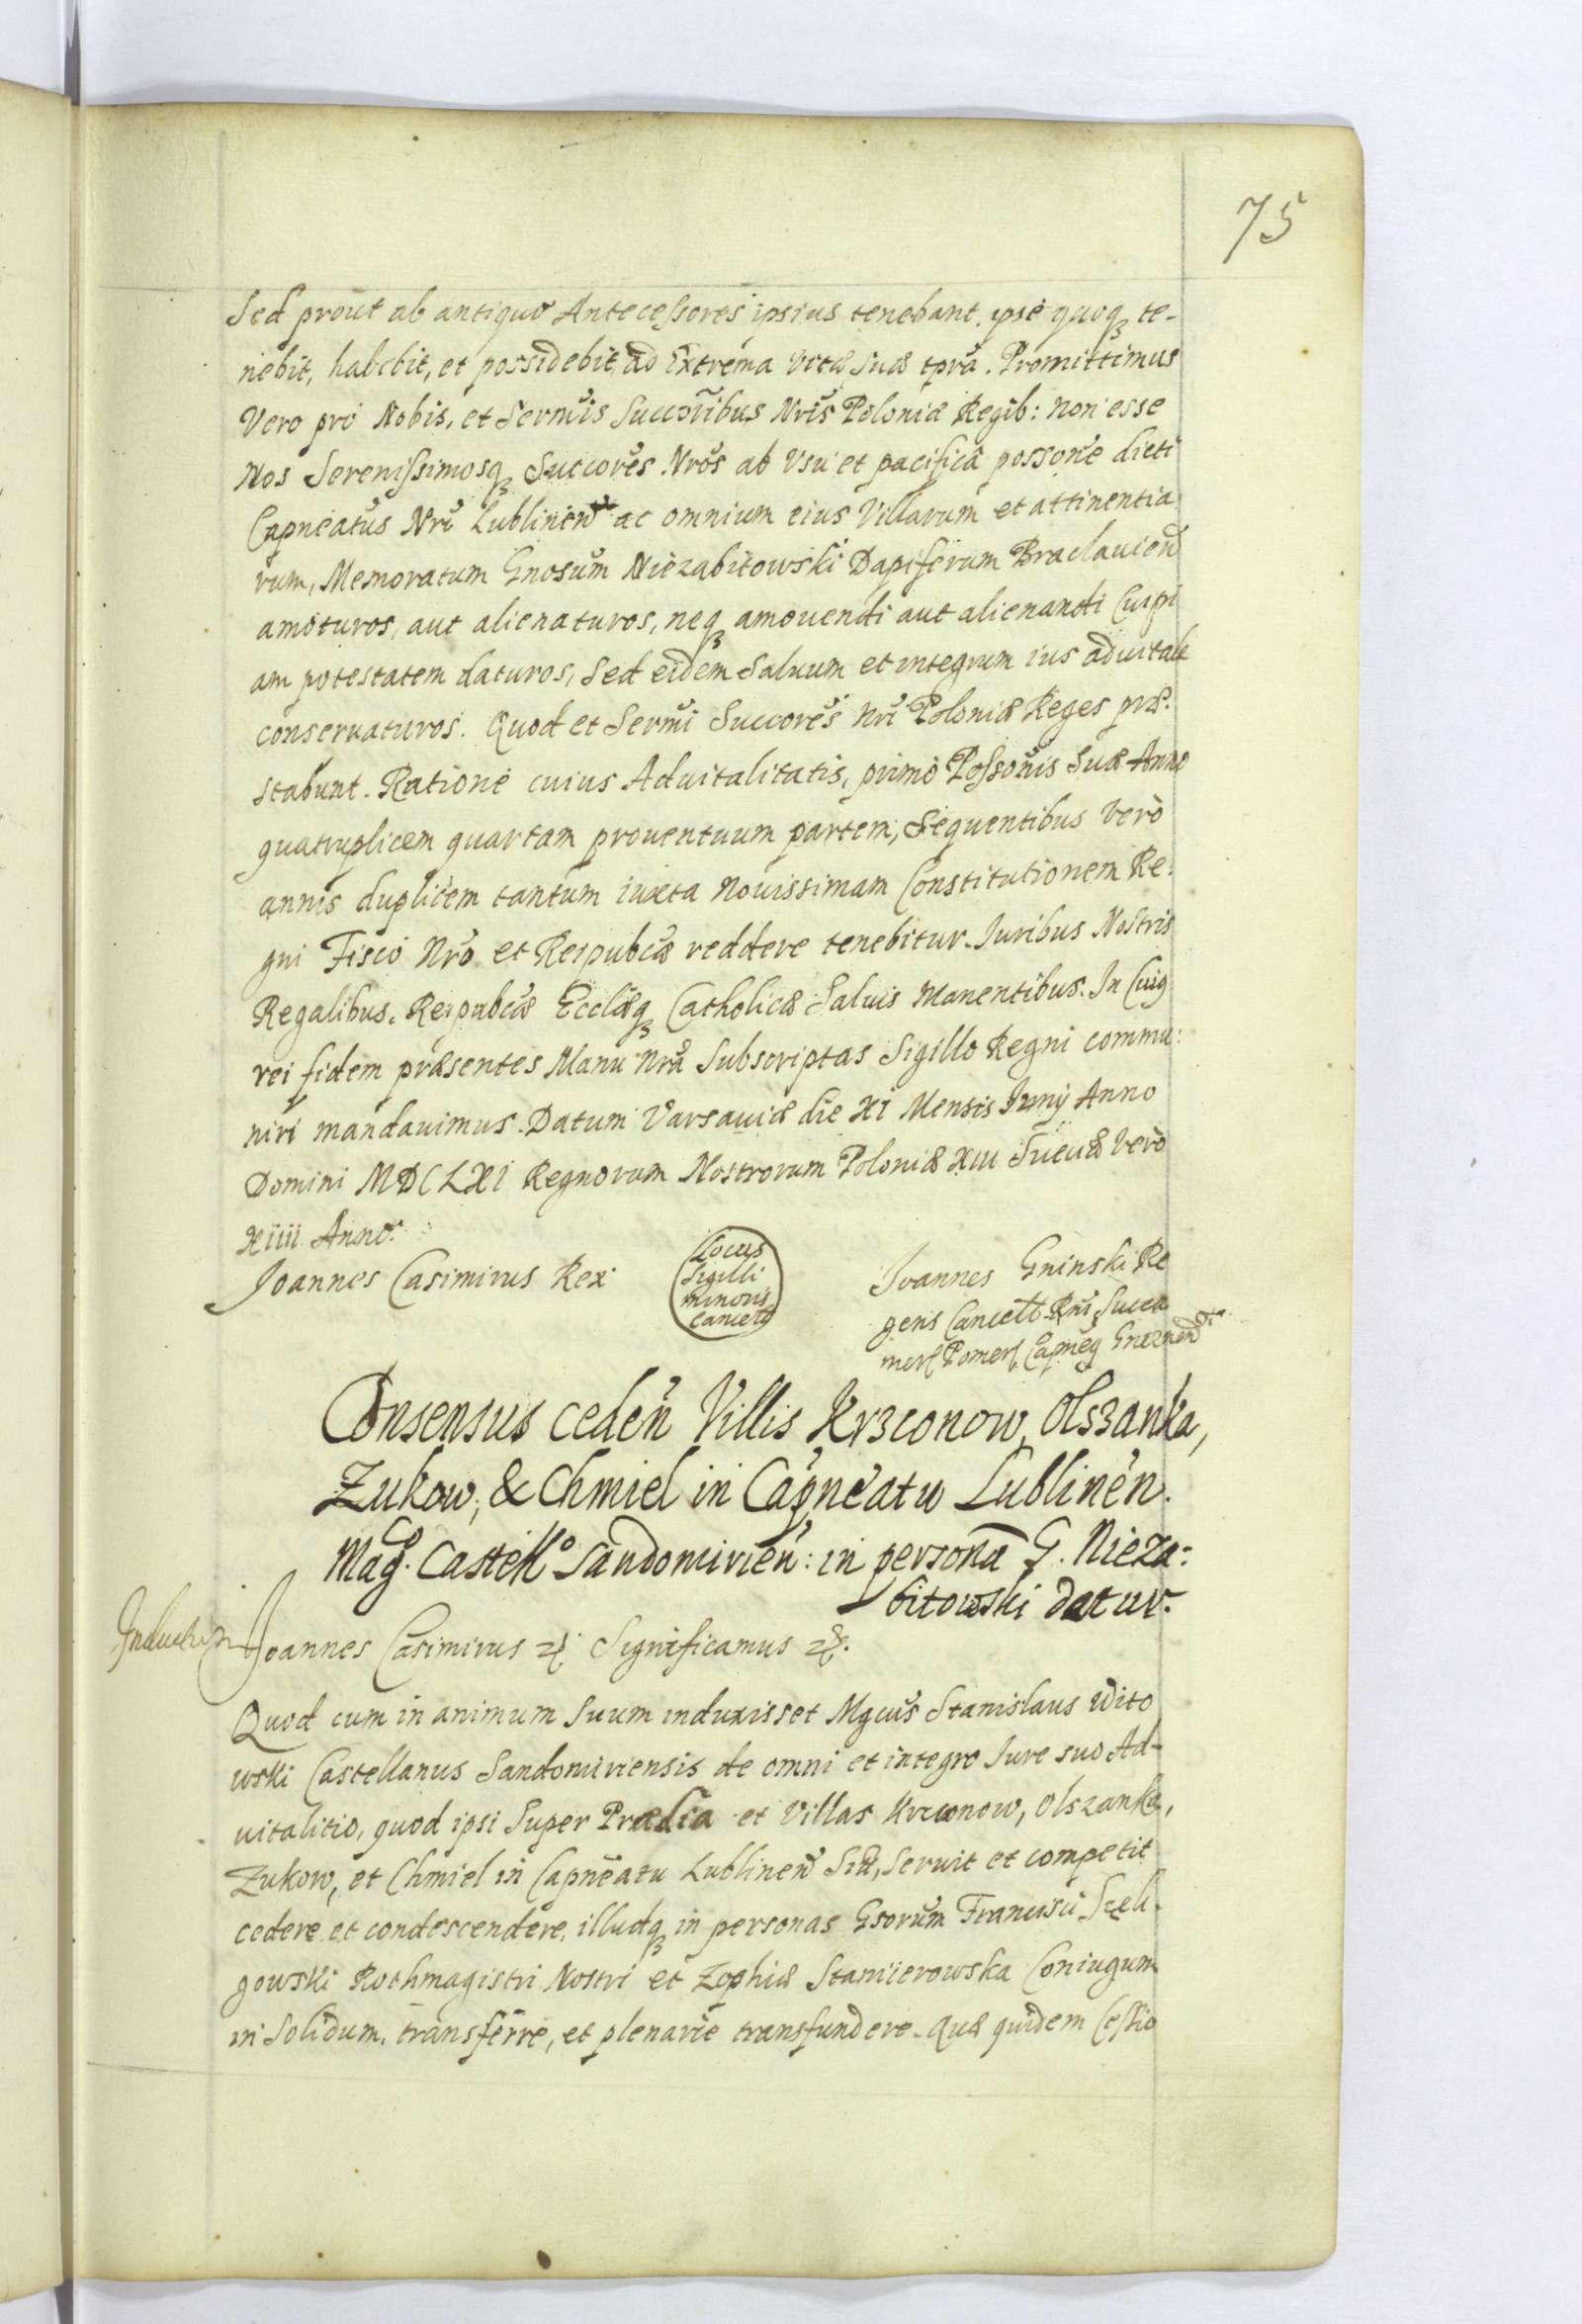 75
Sed prout ab antiquo Antecessores ipsius tenebant, ipse quoq3 te-
nebit, habebit, et possidebit ad Extrema vitæ suæ tpra. Promittimus
Vero pro Nobis, et Sermis Succoribus Nris Poloniæ Regib: non esse
Nos Serenissimosq3 Succores Nros ab Usu et pacifica possone dicti
Capneatus Nri Lublinen ac omnium eius Villarum et attinentia
rum, Memoratum Gnosum Niezabitowski Dapiferum Braclavien
amoturos, aut alienaturos, neq3 amovendi aut alienandi Cuipi
am potestatem daturos, Sed eidem Salvum et integrum ius advitale
conservaturos. Quod et Sermi Succores Nri Poloniæ Reges præ-
stabunt. Ratione cuius Advitalitatis, primo Possonis Suæ Anno
quatruplicem quartam proventuum partem, Sequentibus vero
annis duplicem tantum iuxta Novissimam Constitutionem Re:
gni Fisco Nro et Reipubcæ reddere tenebitur. Iuribus Nostris
Regalibus, Reipubcæ Ecclæq3 Catholicæ Salvis Manentibus. In Cuig
rei fidem præsentes Manu Nra Subscriptas Sigillo Regni commu:
niri mandavimus. Datum Varsaviæ die XI Mensis Junij Anno
Domini MDCLXI Regnorum Nostrorum Poloniæ XIII Sueciæ vero
XIIII Anno.
Joannes Casimirus Rex
Locus
Sigilli
minoris
Cancell
Joannes Gninski Re
gens Cancell Rni, Succa
mer Pomer, Capneg Gneznen
Consensus ceden Villis Krzconow, Olszanka,
Zukow, & Chmiel in Capneatu Lublinen.
Magco. Castello Sandomirien: in persona G. Nieza:
bitowski datur.
Inductum
Joannes Casimirus etc. Significamus etc.
Quod cum in animum Suum induxisset Mgcus Stanislaus Wito
wski Castellanus Sandomiriensis de omni et integro Iure suo Ad-
vitalitio, quod ipsi Super Prædia et Villas Krzconow, Olszanka,
Zukow, et Chmiel in Capneatu Lublinen Sita, Servit et competit
cedere et condescendere, illudq3 in personas Gsorum Francisci Szeli-
gowski Rothmagistri Nostri et Zophiæ Coniugum
in Solidum, transferre, et plenarie transfundere. Quæ quidem Cessio